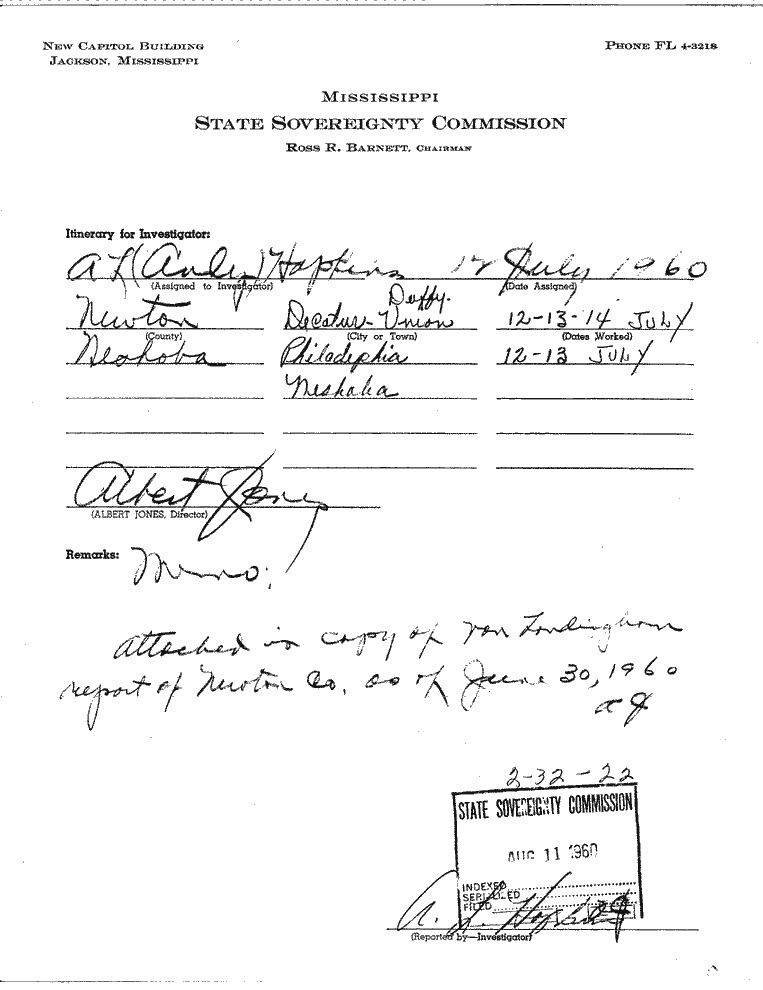 NEW CAPITOL BUILDING
JACKSON, MISSISSIPPI
PHONE FL 4-3218
MISSISSIPPI
STATE SOVEREIGNTY COMMISSION
ROSS R. BARNETT, CHAIRMAN
Itinerary for Investigator:
A L (Andy) Hopkins 12 July 1960
(Assigned to Investigator) (Date Assigned)
Duffy.
Newton Decatur-Union 12-13-14 JULY
(County) (City or Town) (Dates Worked)
Neshoba Philadephia 12-13 JULY
Neshaba
Albert Jones
(ALBERT JONES, Director)
Remarks: Memo:
Attached is copy of Van Landingham
report of Newton Co. as of June 30, 1960
a J
2-32-22
STATE SOVEREIGNTY COMMISSION
AUG 11 1960
INDEXED
SERIALIZED
FILED
A. L. Hopkins
(Reported by—Investigator)